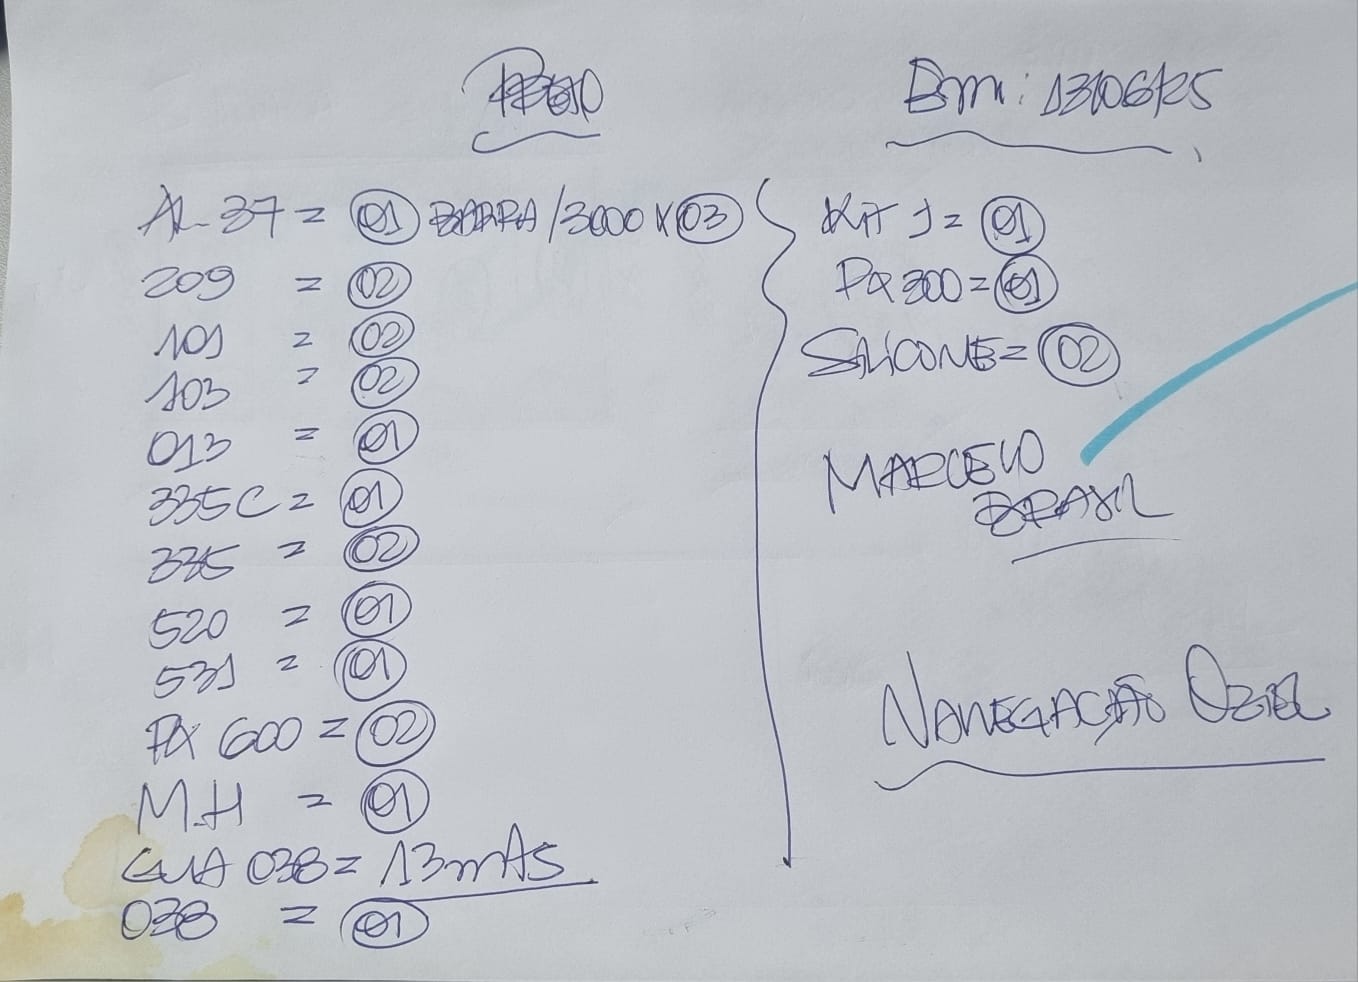 Em: 13/06/25
AL-37 = 01 BARRA/3000 X 03
209 = 02
101 = 02
103 = 02
013 = 01
335C = 01
335 = 02
520 = 01
531 = 01
PX 600 = 02
M.H = 01
GUA 038 = 13 mts
038 = 01
KIT 1 = 01
PX 300 = 01
SILICONE = 02
MARCELO
BRASIL
NAVEGAÇÃO OZIEL